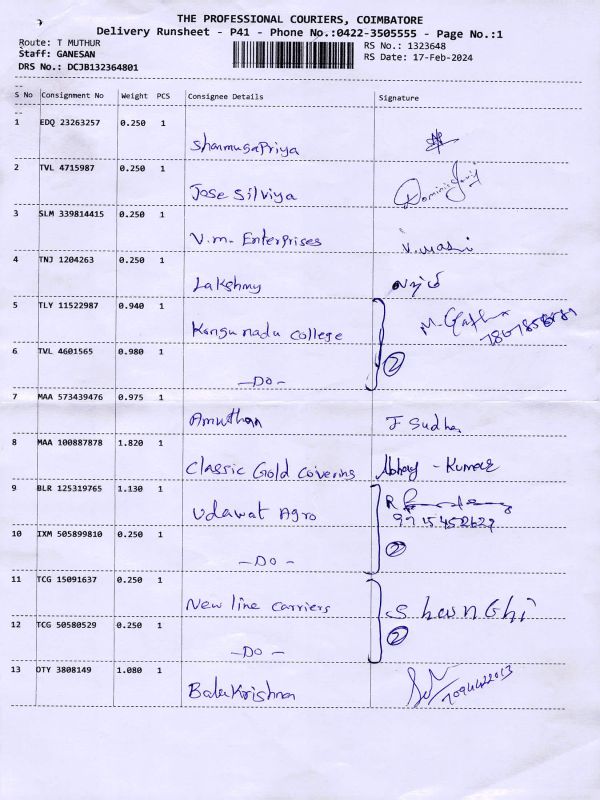 THE PROFESSIONAL COURIERS, COIMBATORE
Delivery Runsheet - P41 - Phone No.:0422-3505555 - Page No.:1
Route: T MUTHUR
Staff: GANESAN
DRS No.: DCJB132364801
RS No.: 1323648
RS Date: 17-Feb-2024
S No Consignment No Weight PCS Consignee Details Signature
1 EDQ 23263257 0.250 1
ShanmugaPriya
2 TVL 4715987 0.250 1
Jose Silviya
3 SLM 339814415 0.250 1
V.m. Enterprises
4 TNJ 1204263 0.250 1
Lakshmy
5 TLY 11522987 0.940 1
Kongunadu College
6 TVL 4601565 0.980 1
2
-Do-
7 MAA 573439476 0.975 1
Amuthan J Sudha
8 MAA 100887878 1.820 1
Classic Gold Coverins Abhay - Kumar
9 BLR 125319765 1.130 1
Udawat Agro
10 IXM 505899810 0.250 1
2
-Do-
11 TCG 15091637 0.250 1
New line carriers ShanGhi
12 TCG 50580529 0.250 1
2
-Do-
13 OTY 3808149 1.080 1
BalaKrishnan